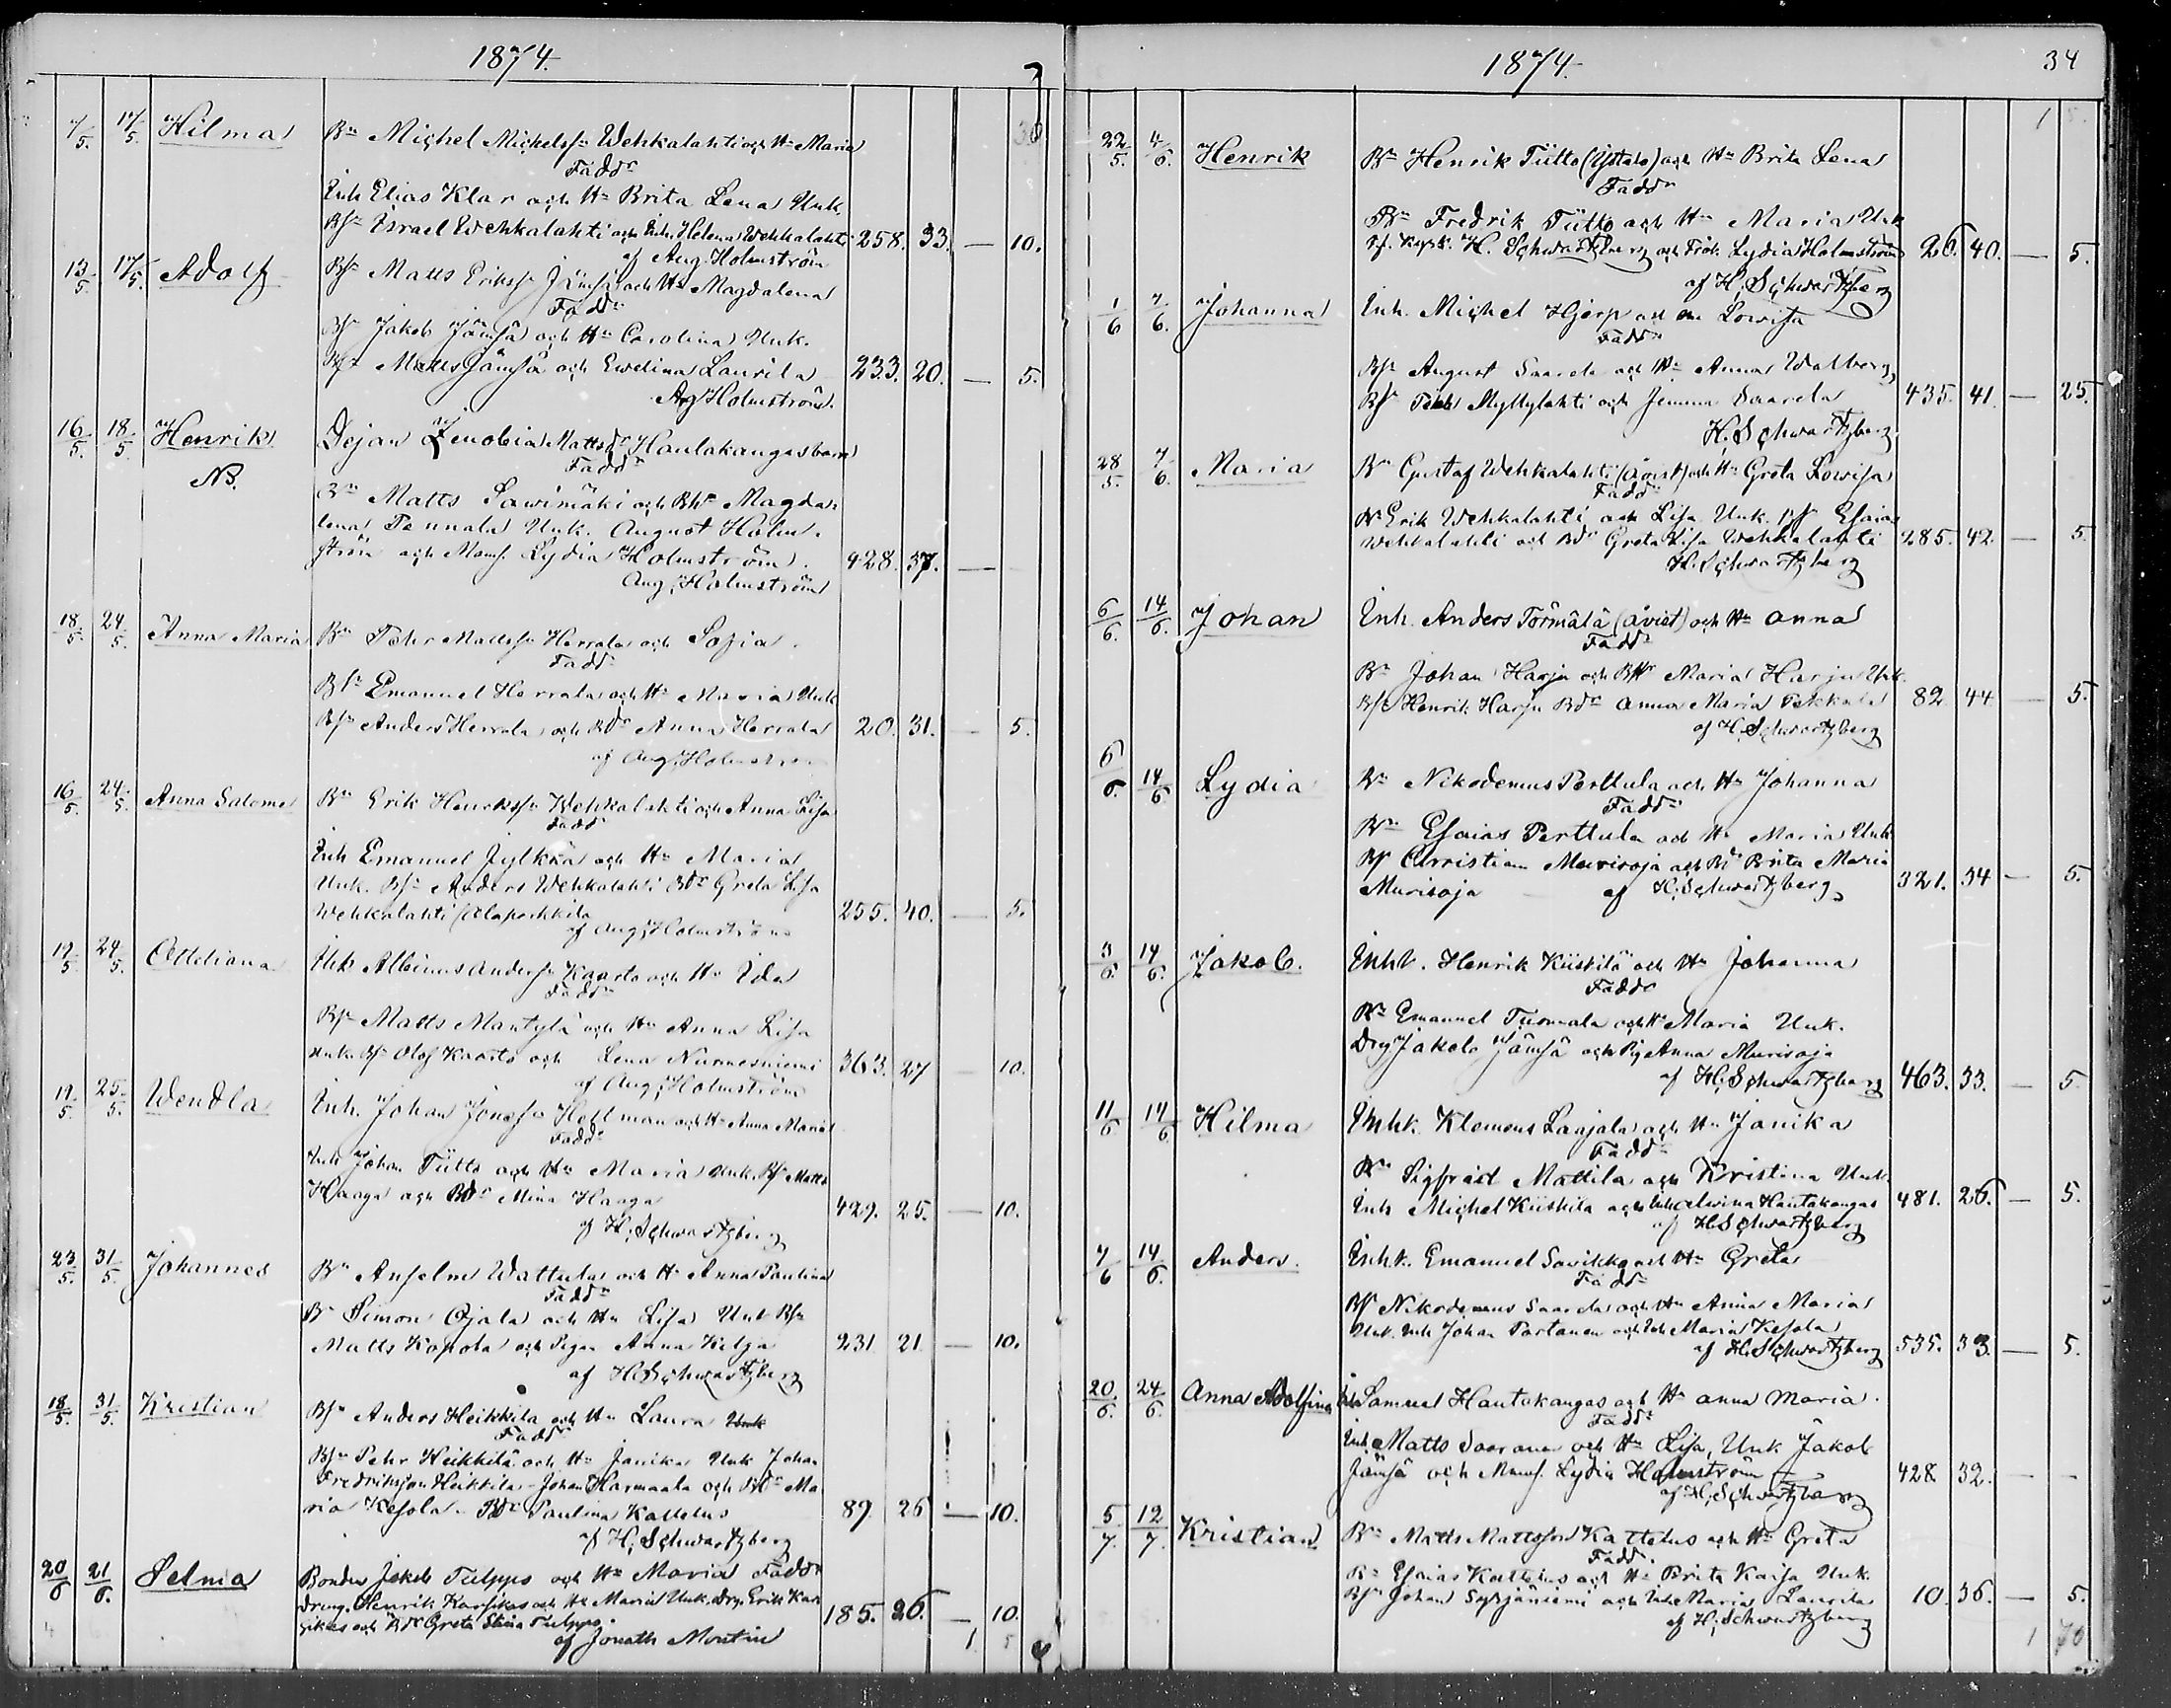 1874.
7/5. 17/5. Hilma Bn Michel Michelsn Wehkalahti och Hu Maria
Faddr
Inh Elias Klar och Hu Brita Lena Unk.
Bsn Israel Wehkalahti och Inh. Helena Wehkalahti 258. 33. — 10.
af Aug. Holmström
13/5. 17/5. Adolf Bsn Matts Erikssn Jämsä och Hu Magdalena
Faddr
Bsn Jakob Jämsä och Hu Carolina Unk.
Bsn Matts Jämsä och Ewelina Laurila 233. 20. — 5.
Aug Holmström.
16/5. 18/5. Henrik Dejan Zenobia Mattsdr Hautakangas barn
NB. Faddr
Bn Matts Sawimäki och Bhu Magda-
lena Pennala Unk. August Holm-
ström och Mams. Lydia Holmström. 428. 37. —
Aug. Holmström
18/5. 24/5. Anna Maria Bn Pehr Mattssn Herrala och Sofia.
Faddr
Bsn Emanuel Herrala och Hu Maria Unk
Bsn Anders Herrala och Bdr Anna Herrala 20. 31. — 5.
af Aug. Holmström
16/5. 24/5. Anna Salome Bn Erik Henrikssn Wehkalahti och Anna Lisa
Faddr
Inh Emanuel Jylkkä och Hu Maria
Unk. Bsn Anders Wehkalahti Bdr Greta Lisa
Wehkalahti (Alaporkkila 255. 40. — 5.
af Aug. Holmström
19/5. 24/5. Ottiliana Inh Albinus Anderssn Kaarto och Hu Ida
Faddr
Bsn Matts Mantylä och Hu Anna Lisa
Unk. Bsn Olof Kaarto och Lena Nurmesniemi 363. 27 — 10.
af Aug. Holmström
19/5. 25/5. Wendla Inh. Johan Jonassn Hellman och Hu Anna Maria
Faddr
Inh Johan Tiitto och Hu Maria Unk. Bsn Matts
Haaga och Bdr Mina Haaga 429. 25. — 10.
af H. Schwartzberg
23/5. 31/5. Johannes Bn Anselm Wattula och Hu Anna Paulina
Faddr
Bn Simon Ojala och Hu Lisa Unk Bsn
Matts Kopola och Pigan Anna Kilja 231. 21. — 10.
af H. Schwartzberg
18/5. 31/5. Kristian Bsn Anders Heikkila och Hu Laura
Faddr
Bsn Pehr Heikkilä och Hu Janika Unk Johan
Fredriksson Heikkila - Johan Harmaala och Bdr Ma-
ria Kesola - Bdr Paulina Kattelus 89. 26 — 10.
af H. Schwartzberg
20/6 21/6. Selma Bonden Jakob Tulppo och Hu Maria Faddr
Dreng. Henrik Karsikas och Hu Maria Unk. Drg. Erik Kar-
sikas och Bdr Greta Stina Tulppo. 185. 26. — 10.
af Jonath Montin
1 5
1874.
34
1 5.
22/5. 4/6. Henrik Bn Henrik Tiitto (Ystala) och Hu Brita Lena
Faddr
Bn Fredrik Tiitto och Hu Maria Unk
H. Schwartzberg och Frök. Lydia Holmström 26. 40. — 5.
af H. Schwartzberg
1/6 7/6. Johanna Inh. Michel Hjerp och Hu Lowisa
Faddr
Bsn August Saarela och Hu Anna Walborg
Bsn Pehr Myllylahti och Jemina Saarela 435. 41. — 25.
H. Schwartzberg.
28/5. 7/6. Maria Bn Gustaf Wehkalahti (åvist) och Hu Greta Lowisa
Faddr
Bn Erik Wehkalahti och Lisa Unk. Bsn Esaias
Wehkalahti och Bdr Greta Lisa Wehkalahti 285. 42. — 5.
H. Schwartzberg
6/6. 14/6. Johan Inh. Anders Törmälä (åvist) och Hu Anna
Faddr
Bn Johan Harju och BHu Maria Harju Unk.
Bsn Henrik Harju Bdr Anna Maria Pekkala 82. 44. — 5.
af H. Schwartzberg
6/6. 14/6 Lydia Bn Nikodemus Perttula och Hu Johanna
Faddr
Bn Esaias Perttula och Hu Maria Unk
Bsn Christian Murisoja och Bdr Brita Maria
Murisoja af H. Schwartzberg 321. 34 — 5.
3/6. 14/6. Jakob. Inh. Henrik Kiiskilä och Hu Johanna
Faddr
Bn Emanuel Tuomala och Hu Maria Unk.
Drg Jakob Jämsä och Pig. Anna Murisoja
af H. Schwartzberg 463. 33. — 5.
11/6 14/6 Hilma Inh. Klemens Laajala och Hu Janika
Faddr
Bn Sigfrid Mattila och Kristina Unk.
Inh Michel Kiiskila och Inh Alwina Hautakangas 481. 26. — 5.
af H. Schwartzberg
7/6 14/6. Anders. Inh. Emanuel Sawikko och Hu Greta
Faddr
Bsn Nikodemus Saarela och Hu Anna Maria
Unk. Inh Johan Partanen och Inh Maria Kesola
af H. Schwartzberg 535. 33. — 5.
20/6. 24/6. Anna Adolfina Inh Samuel Hautakangas och Hu Anna Maria.
Faddr
Inh Matts Saaranen och Hu Lisa, Unk Jakob
Jämsä och Mams. Lydia Holmström 428. 32. — -
af H. Schwartzberg
5/7. 12/7. Kristian Bn Matts Mattsson Kattelus och Hu Greta
Faddr.
Bn Esaias Kattelus och Hu Brita Kaisa Unk.
Bsn Johan Syrjäniemi och Inh Maria Laurila 10. 36. — 5.
af H. Schwartzberg
1 70